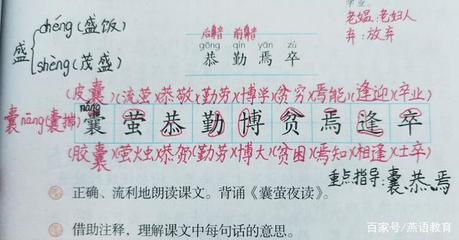 盛
chéng(盛饭)
shèng(茂盛)
老媪:老妇人
弃:放弃
后鼻音 前鼻音
gōng qín yān zú
恭 勤 焉 卒
(皮囊)(流萤)(恭敬)(勤劳)(博学)(贫穷)(焉能)(逢迎)(卒业)
náng
囊nāng(囊揣)
囊 萤 恭 勤 博 贫 焉 逢 卒
(胶囊)(萤火虫)(恭贺)(勤劳)(博大)(贫困)(焉知)(相逢)(士卒)
重点指导:囊、恭、焉
正确、流利地朗读课文。背诵《囊萤夜读》。
借助注释,理解课文中每句话的意思。
百家号/燕语教育